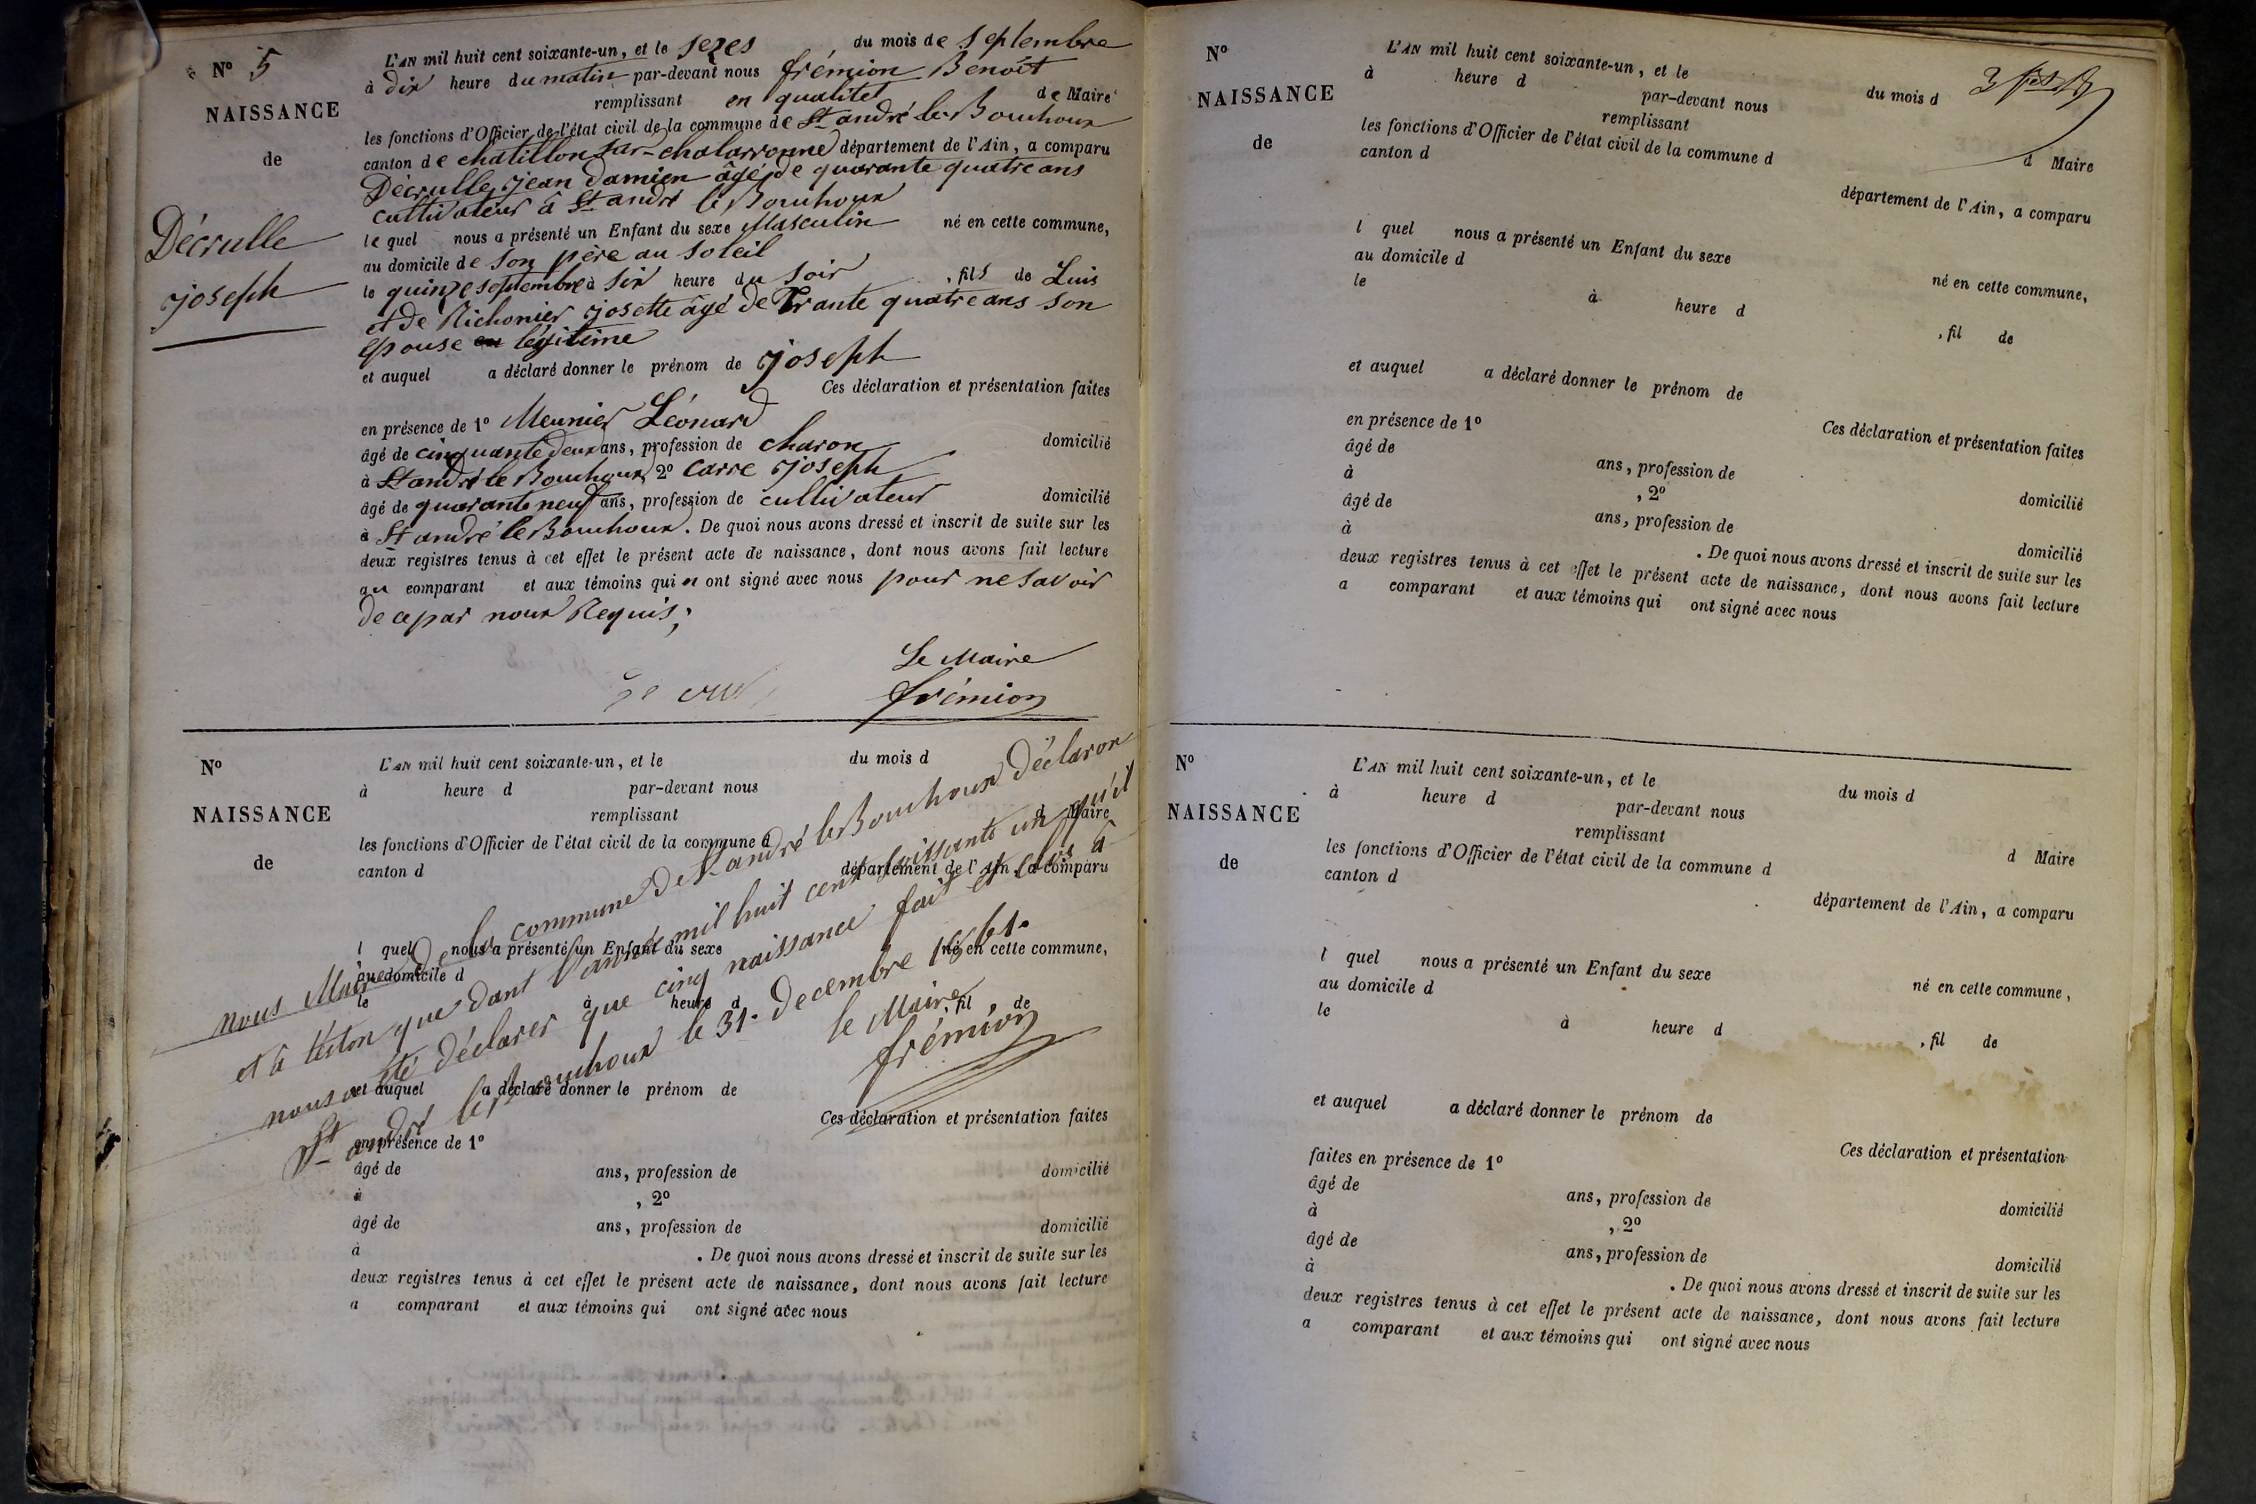 N° 5
NAISSANCE
de
Décrulle
joseph
L'AN mil huit cent soixante-un, et le sezes du mois de septembre
à dix heure du matin par-devant nous frémion Benoît
remplissant en qualitet de Maire
les fonctions d'Officier de l'état civil de la commune de St andré le Bouchoux
canton de chatillon sur-chalarronne département de l'Ain, a comparu
Décrulle jean damien âgé de quarante quatre ans
cultivateur â St andré le Bouchoux
lequel nous a présenté un Enfant du sexe Masculin né en cette commune,
au domicile de son père au soleil
le quinze septembre à six heure du soir , fils de Luis
et de Richonier josette âgé de Trante quatre ans son
épouse en légitime
et auquel a déclaré donner le prénom de joseph
Ces déclaration et présentation faites
en présence de 1° Meunier Léonard
âgé de cinquante deux ans, profession de charon domicilié
à St andré le Bouchoux 2° carre joseph
âgé de quarante neuf ans, profession de cultivateur domicilié
à St andré le Bouchoux. De quoi nous avons dressé et inscrit de suite sur les
deux registres tenus à cet effet le présent acte de naissance, dont nous avons fait lecture
au comparant et aux témoins qui n ont signé avec nous pour ne savoir
de ce par nous Requis;
Le Maire
frémion
N°
NAISSANCE
de
L'AN mil huit cent soixante-un, et le du mois d
à heure d par-devant nous
remplissant d Maire
les fonctions d'Officier de l'état civil de la commune d
canton d département de l'Ain, a comparu
l quel nous a présenté un Enfant du sexe né en cette commune,
au domicile d
le à heure d , fil de
et auquel a déclaré donner le prénom de
Ces déclaration et présentation faites
en présence de 1°
âgé de ans, profession de domicilié
à , 2°
âgé de ans, profession de domicilié
à . De quoi nous avons dressé et inscrit de suite sur les
deux registres tenus à cet effet le présent acte de naissance, dont nous avons fait lecture
a comparant et aux témoins qui ont signé avec nous
nous Maire de la commune de St andré le Bouchoux déclaron
et â que dant l'année mil huit cent soissante un qu'il
nous a été déclarer que cinq naissance fait et clos â
St andré le Bouchoux le 31. decembre 1861.
le Maire
frémion
N°
NAISSANCE
de
L'AN mil huit cent soixante-un, et le du mois d
à heure d par-devant nous
remplissant d Maire
les fonctions d'Officier de l'état civil de la commune d
canton d département de l'Ain, a comparu
l quel nous a présenté un Enfant du sexe né en cette commune,
au domicile d
le à heure d , fil de
et auquel a déclaré donner le prénom de
Ces déclaration et présentation faites
en présence de 1°
âgé de ans, profession de domicilié
à , 2°
âgé de ans, profession de domicilié
à . De quoi nous avons dressé et inscrit de suite sur les
deux registres tenus à cet effet le présent acte de naissance, dont nous avons fait lecture
a comparant et aux témoins qui ont signé avec nous
N°
NAISSANCE
de
L'AN mil huit cent soixante-un, et le du mois d
à heure d par-devant nous
remplissant d Maire
les fonctions d'Officier de l'état civil de la commune d
canton d département de l'Ain, a comparu
l quel nous a présenté un Enfant du sexe né en cette commune,
au domicile d
le à heure d , fil de
et auquel a déclaré donner le prénom de
Ces déclaration et présentation
faites en présence de 1°
âgé de ans, profession de domicilié
à , 2°
âgé de ans, profession de domicilié
à . De quoi nous avons dressé et inscrit de suite sur les
deux registres tenus à cet effet le présent acte de naissance, dont nous avons fait lecture
a comparant et aux témoins qui ont signé avec nous